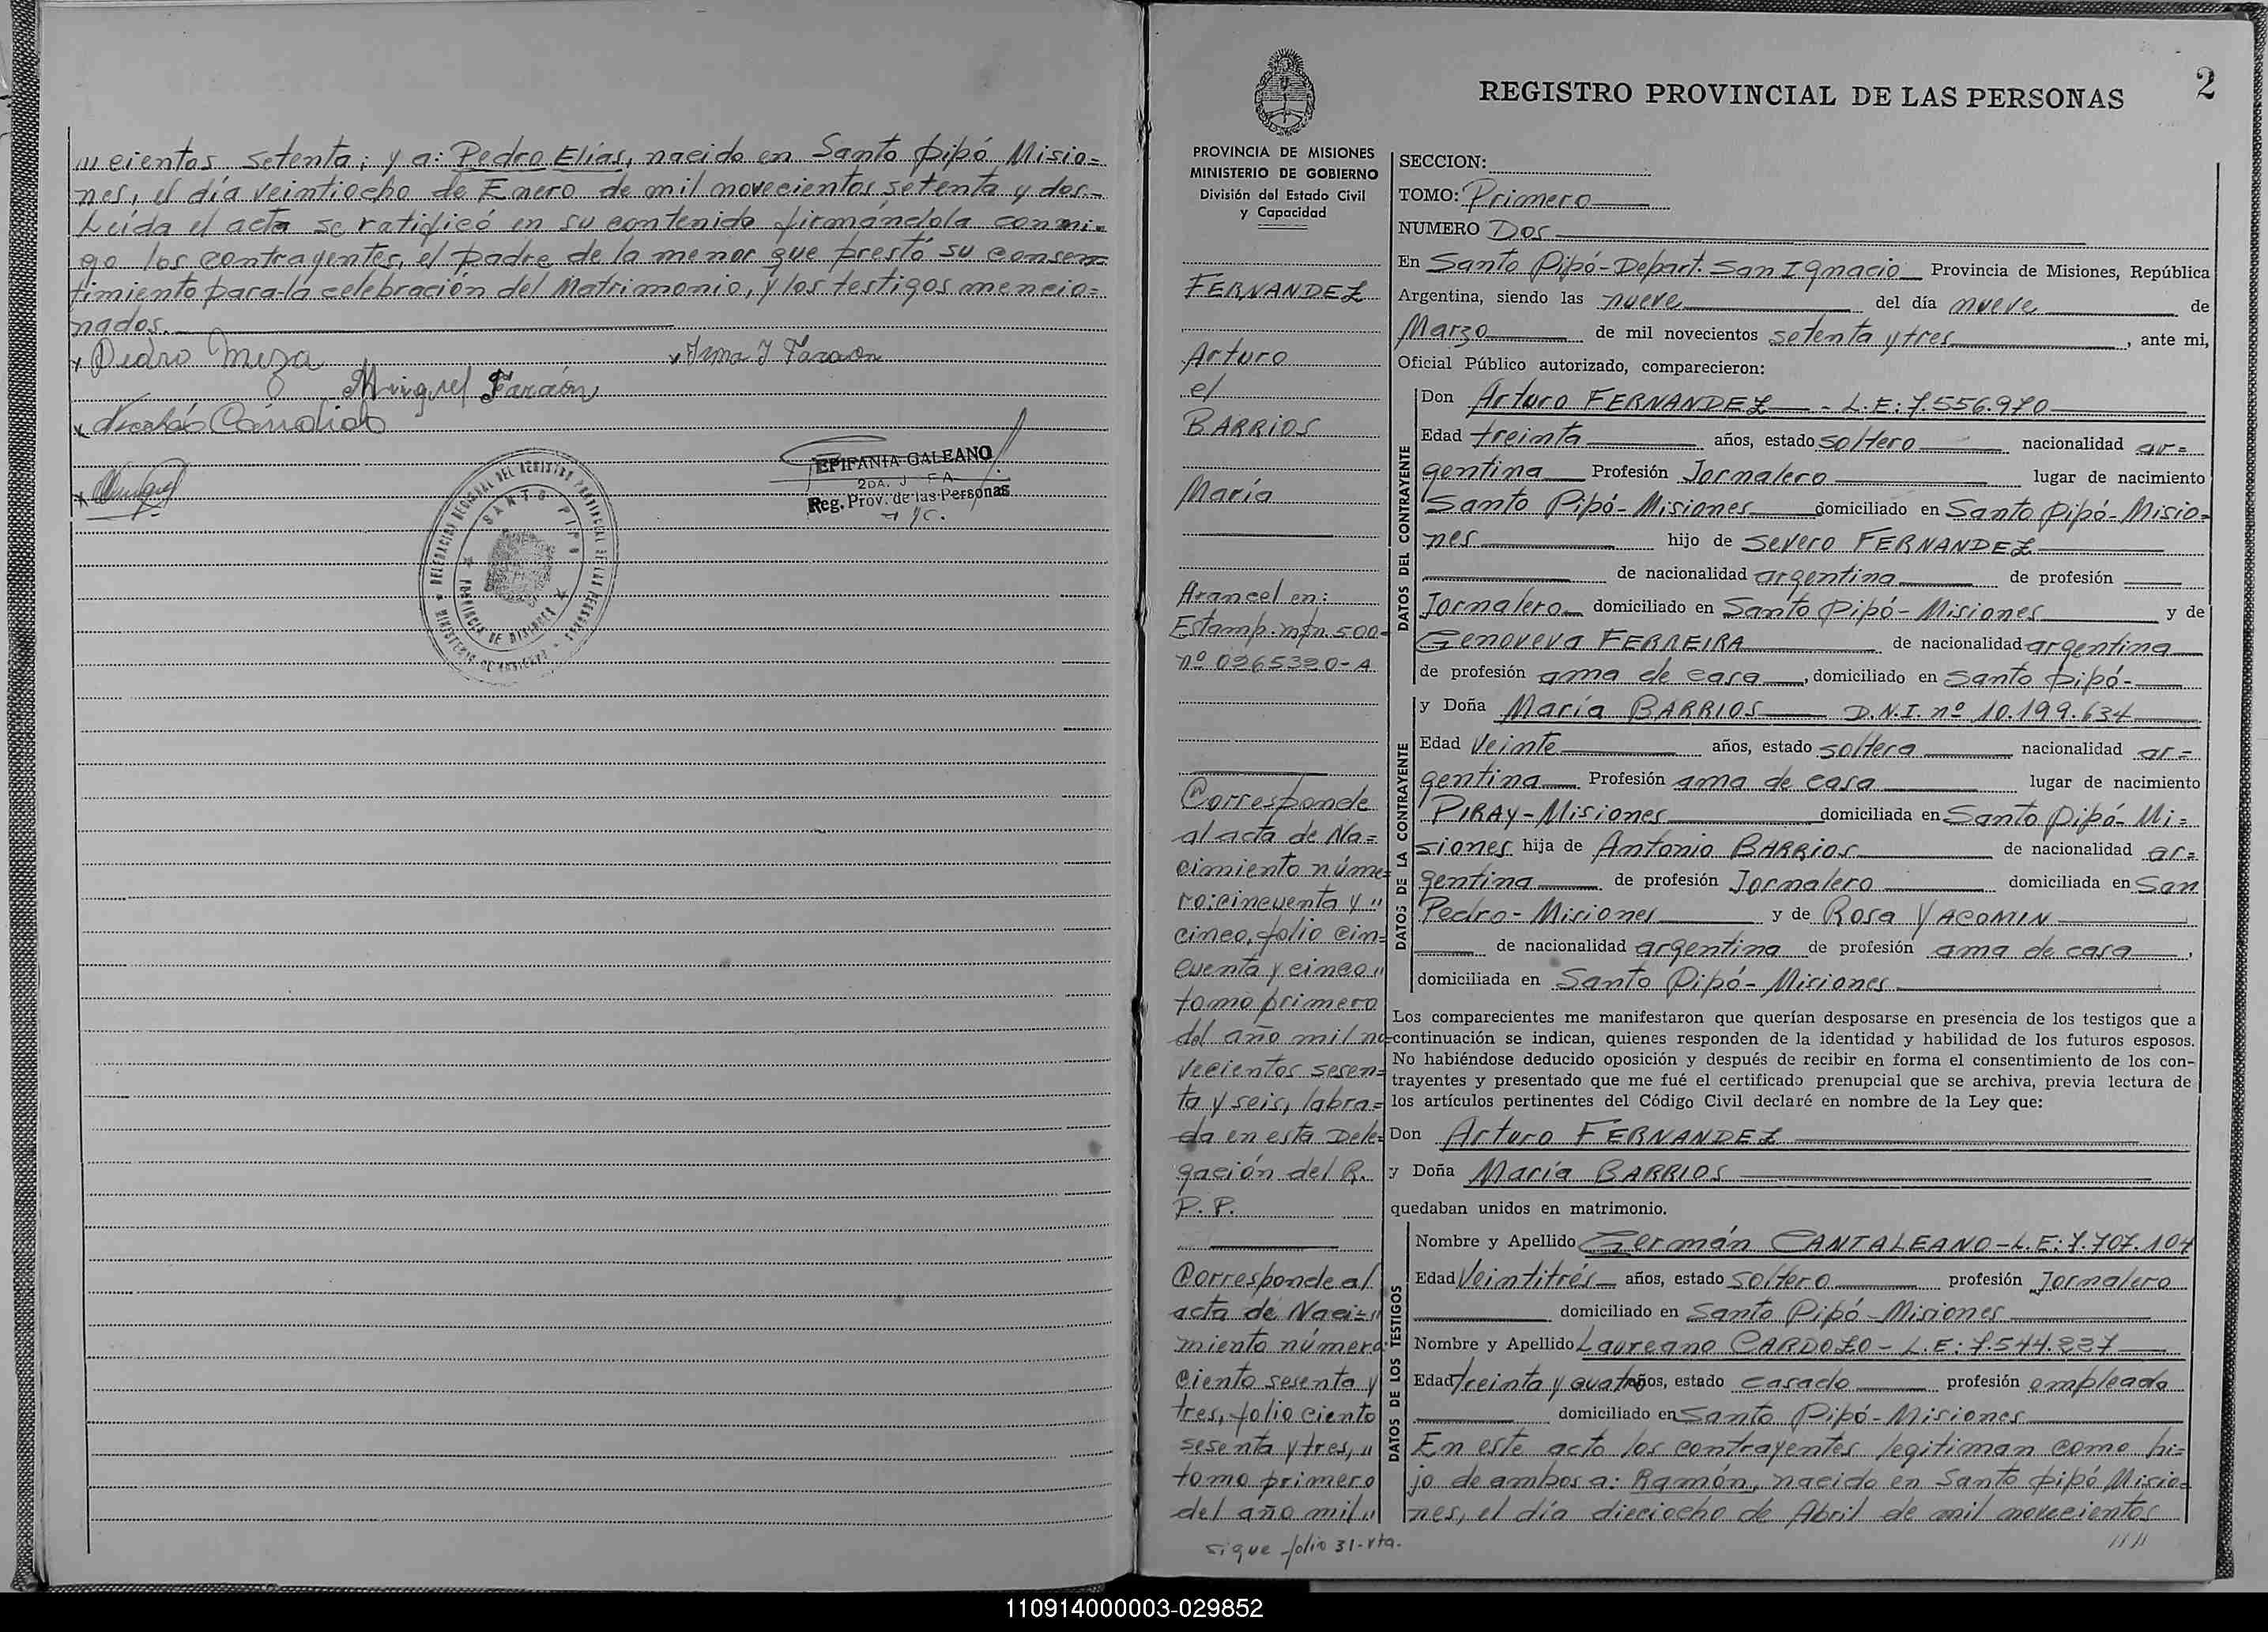 cientos setenta; y a: Pedro Elías, nacido en Santo Pipó Misio=
nes, el día veintiocho de Enero de mil novecientos setenta y dos.-
Leída el acta se ratificó en su contenido firmándola conmi=
go los contrayentes, el padre de la menor que prestó su consen=
timiento para la celebración del Matrimonio, y los testigos mencio=
nados.
x Pedro Meza
x Irma Y Faraón
Minguel Faraón
x Nicolás Cándido
EPIFANIA GALEANO
2DA. J F A
Reg. Prov. de las Personas
DELEGACION REGIONAL DEL REGISTRO PROVINCIAL DE LAS PERSONAS
MINISTERIO DE GOBIERNO
SANTO PIPO
PROVINCIA DE MISIONES
2
REGISTRO PROVINCIAL DE LAS PERSONAS
PROVINCIA DE MISIONES
MINISTERIO DE GOBIERNO
División del Estado Civil
y Capacidad
FERNANDEZ
Arturo
el
BARRIOS
María
Arancel en:
Estamp. m$n 500-
nº 0265320-A
Corresponde
al acta de Na=
cimiento núme=
ro: cincuenta y "
cinco, folio cin=
cuenta y cinco "
tomo primero
del año mil no=
vecientos sesen=
ta y seis, labra=
da en esta Dele=
gación del R.
P. P.
Corresponde al
acta de Naci="
miento número
ciento sesenta y
tres, folio ciento
sesenta y tres, "
tomo primero
del año mil "
sigue folio 31-vta.
SECCION:
TOMO: Primero
NUMERO Dos
En Santo Pipó-Depart. San Ignacio Provincia de Misiones, República
Argentina, siendo las nueve del día nueve de
Marzo de mil novecientos setenta y tres, ante mi,
Oficial Público autorizado, comparecieron:
DATOS DEL CONTRAYENTE
Don Arturo FERNANDEZ - L.E: 7.556.970
Edad treinta años, estado soltero nacionalidad ar=
gentina Profesión Jornalero lugar de nacimiento
Santo Pipó-Misiones domiciliado en Santo Pipó-Misio=
nes hijo de Severo FERNANDEZ
de nacionalidad argentina de profesión
Jornalero domiciliado en Santo Pipó-Misiones y de
Genoveva FERREIRA de nacionalidad argentina
de profesión ama de casa, domiciliado en Santo Pipó-
DATOS DE LA CONTRAYENTE
y Doña María BARRIOS D.N.I. nº 10.199.634
Edad Veinte años, estado soltera nacionalidad ar=
gentina Profesión ama de casa lugar de nacimiento
PIRAY-Misiones domiciliada en Santo Pipó-Mi=
siones hija de Antonio BARRIOS de nacionalidad ar=
gentina de profesión Jornalero domiciliada en San
Pedro-Misiones y de Rosa YACOMIN
de nacionalidad argentina de profesión ama de casa,
domiciliada en Santo Pipó-Misiones
Los comparecientes me manifestaron que querían desposarse en presencia de los testigos que a
continuación se indican, quienes responden de la identidad y habilidad de los futuros esposos.
No habiéndose deducido oposición y después de recibir en forma el consentimiento de los con-
trayentes y presentado que me fué el certificado prenupcial que se archiva, previa lectura de
los artículos pertinentes del Código Civil declaré en nombre de la Ley que:
Don Arturo FERNANDEZ
y Doña María BARRIOS
quedaban unidos en matrimonio.
DATOS DE LOS TESTIGOS
Nombre y Apellido Germán CANTALEANO-L.E: 7.707.104
Edad Veintitrés años, estado soltero profesión Jornalero
domiciliado en Santo Pipó-Misiones
Nombre y Apellido Laureano CARDOZO-L.E: 7.544.227
Edad treinta y cuatro años, estado casado profesión empleado
domiciliado en Santo Pipó-Misiones
En este acto los contrayentes legitiman como hi=
jo de ambos a: Ramón, nacido en Santo Pipó Misio=
nes, el día dieciocho de Abril de mil novecientos
110914000003-029852